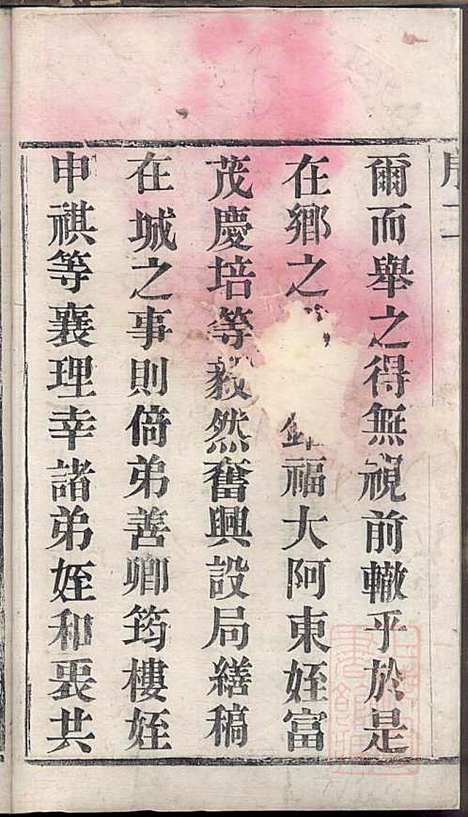 爾而舉之得無視前轍乎於是
在鄉之福大阿東姪富
茂慶培等毅然奮興設局繕稿
在城之事則倚弟善卿筠樓姪
申祺等襄理幸諸弟姪和衷共